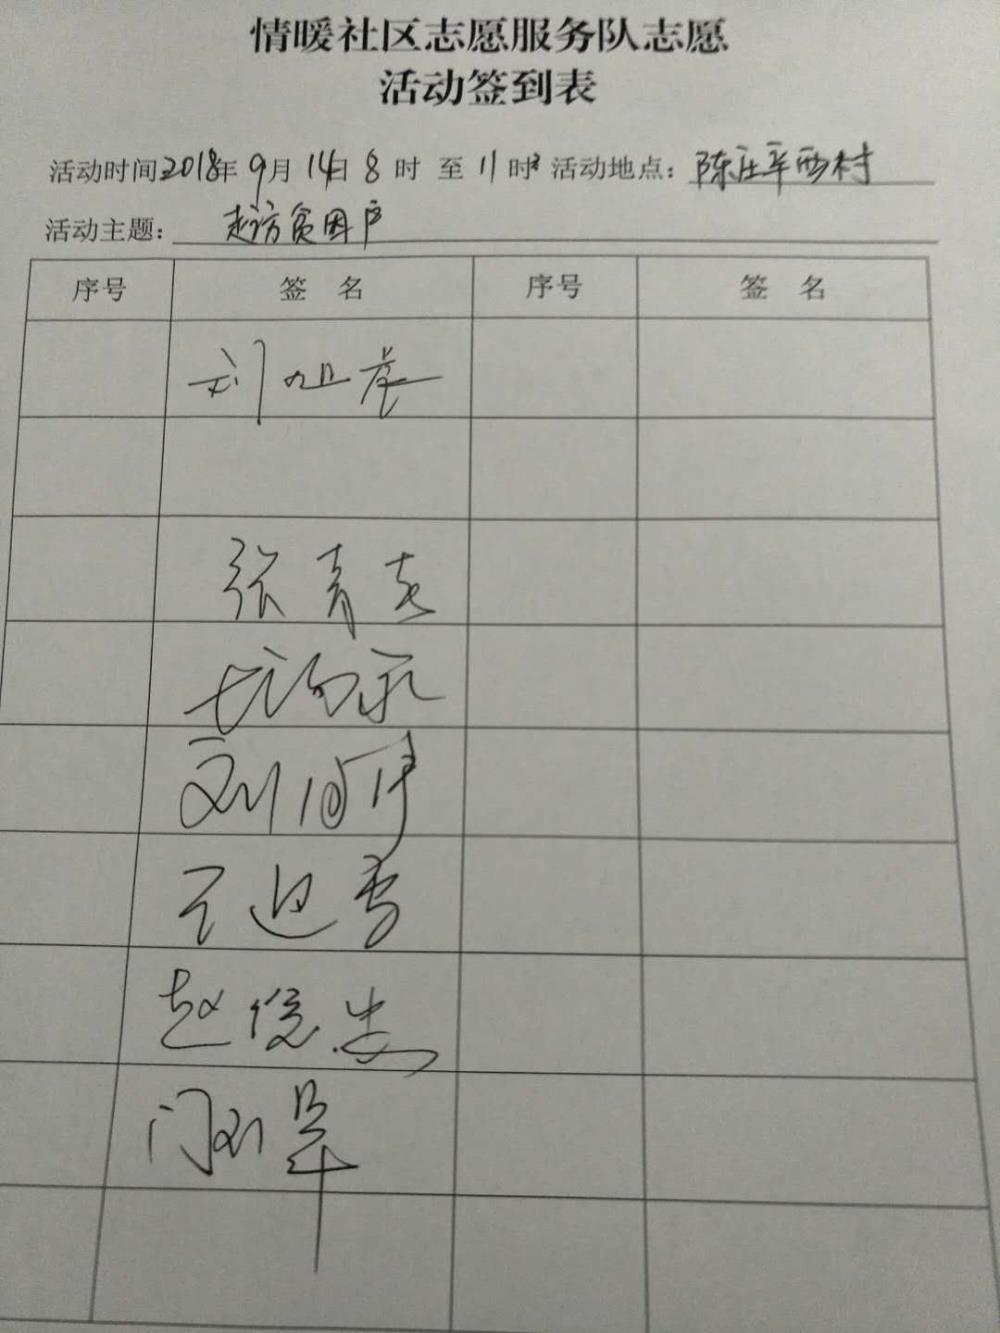 情暖社区志愿服务队志愿
活动签到表
活动时间2018年9月14日8时至11时 活动地点：陈庄辛西村
活动主题：走访贫困户
序号 签 名 序号 签 名
刘旭彦
张青志
刘
王迎雪
赵俊忠